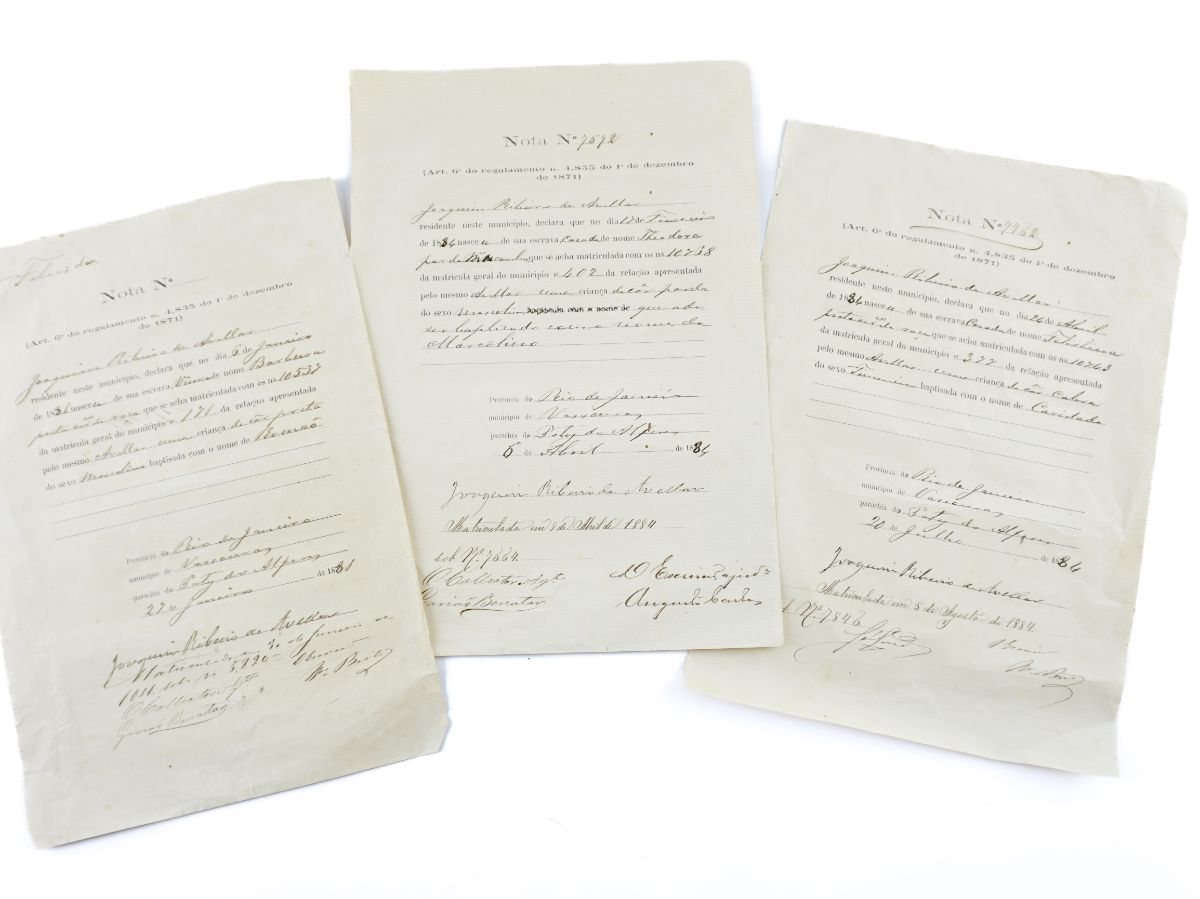 Nota Nº
(Art. 6º do regulamento n. 4.835 do 1º de dezembro
de 1871)
Joaquim Ribeiro de Avellar
residente neste município, declara que no dia 6 de Janeiro
de 1881 nasceu de sua escrava Viuva de nome Barbara
preta de que se acha matriculada com os ns. 10537
da matricula geral do municipio e 171 da relação apresentada
pelo mesmo Avellar uma criança de côr preta
do sexo Masculino baptisada com o nome de Romão
Provincia do Rio de Janeiro
municipio de Vassouras
parochia do Paty do Alferes
27 de Janeiro de 1881
Joaquim Ribeiro de Avellar
Matriculado em de Janeiro de
1881 sob nº
O Collector
Gavião
Nota Nº 7592
(Art. 6º do regulamento n. 4.835 do 1º de dezembro
de 1871)
Joaquim Ribeiro de Avellar
residente neste município, declara que no dia 18 de Fevereiro
de 1884 nasceu de sua escrava Casada de nome Theodora
parda que se acha matriculada com os ns. 10738
da matricula geral do municipio e 402 da relação apresentada
pelo mesmo Avellar uma criança de côr parda
do sexo Masculino baptisada com o nome de que
ser baptisado com o nome de
Marcolino
Provincia do Rio de Janeiro
municipio de Vassouras
parochia do Paty do Alferes
6 de Abril de 1884
Joaquim Ribeiro de Avellar
Matriculada em 8 de Abril de 1884
sob Nº 7664
O Collector Agte
Gavião
O Escrivão ajude
Augusto
Nota Nº 7762
(Art. 6º do regulamento n. 4.835 do 1º de dezembro
de 1871)
Joaquim Ribeiro de Avellar
residente neste município, declara que no dia 24 de Abril
de 1884 nasceu de sua escrava Casada de nome
preta de que se acha matriculada com os ns. 10743
da matricula geral do municipio e 377 da relação apresentada
pelo mesmo Avellar uma criança de côr Cabra
do sexo Feminino baptisada com o nome de Caridade
Provincia do Rio de Janeiro
municipio de Vassouras
parochia do Paty do Alferes
20 de Julho de 1884
Joaquim Ribeiro de Avellar
Matriculada em 5 de Agosto de 1884
sob Nº 7.846